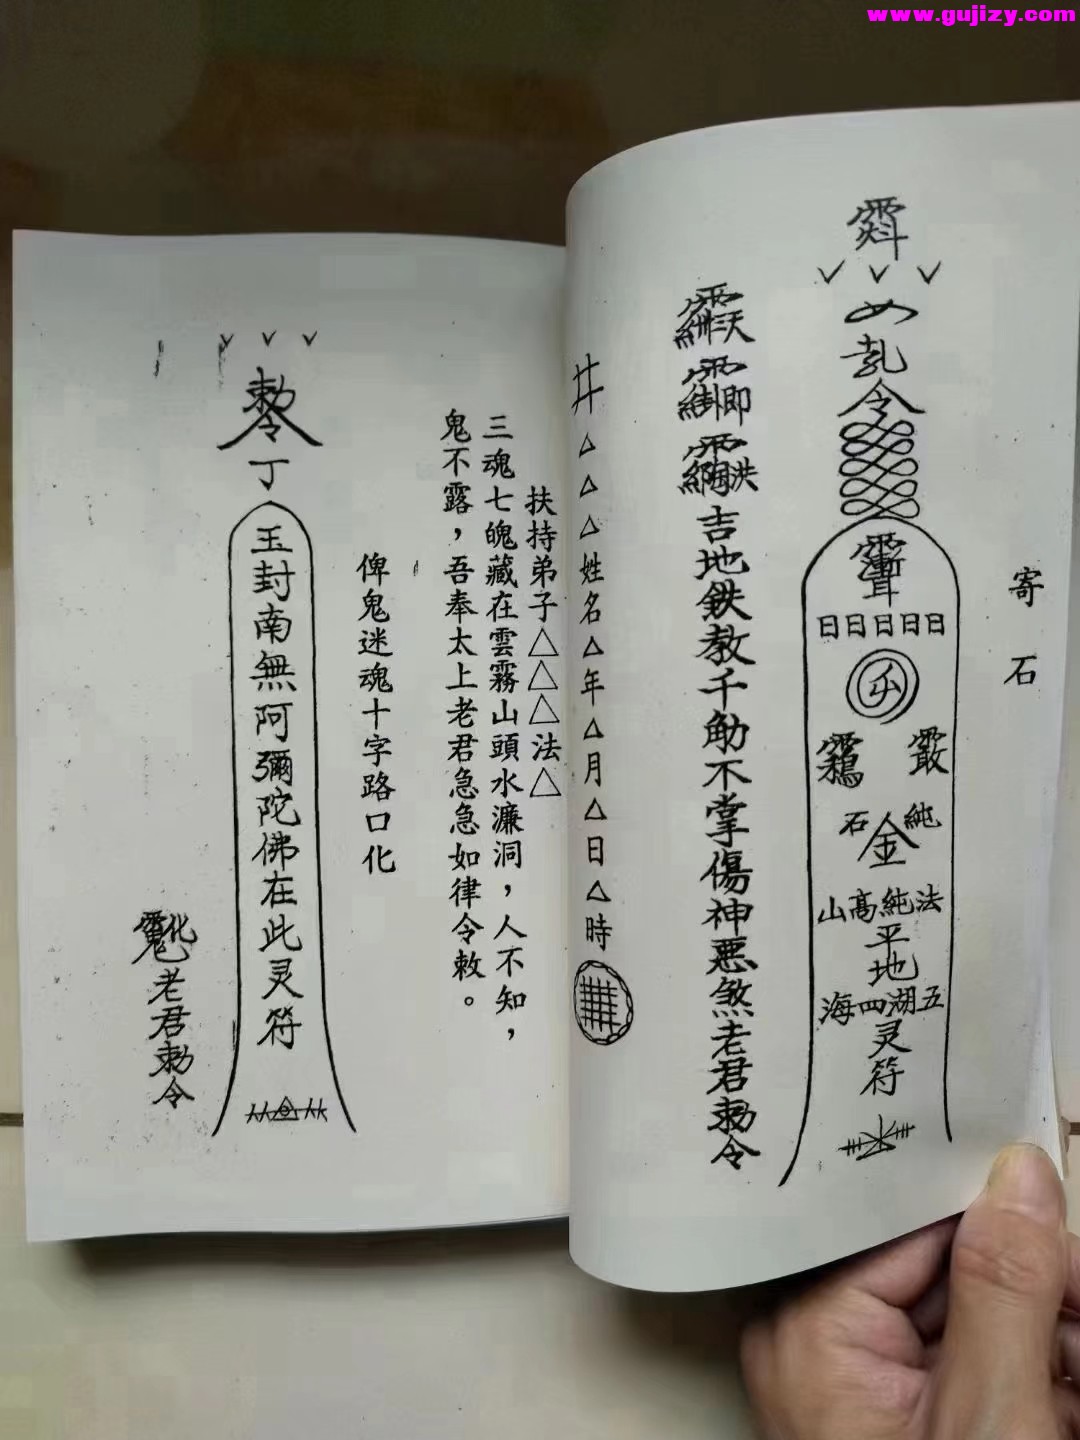 www.gujizy.com
寄石
令
日日日日日
石 金 純
山高純法
平地
海四湖五
灵符
吉地鉄教千觔不掌傷神悪煞老君勅令
井△△△姓名△年△月△日△時
扶持弟子△△△法△
三魂七魄藏在雲霧山頭水濂洞，人不知，
鬼不露，吾奉太上老君急急如律令敕。
俾鬼迷魂十字路口化
勅令
丁
玉封南無阿彌陀佛在此灵符
化
老君勅令